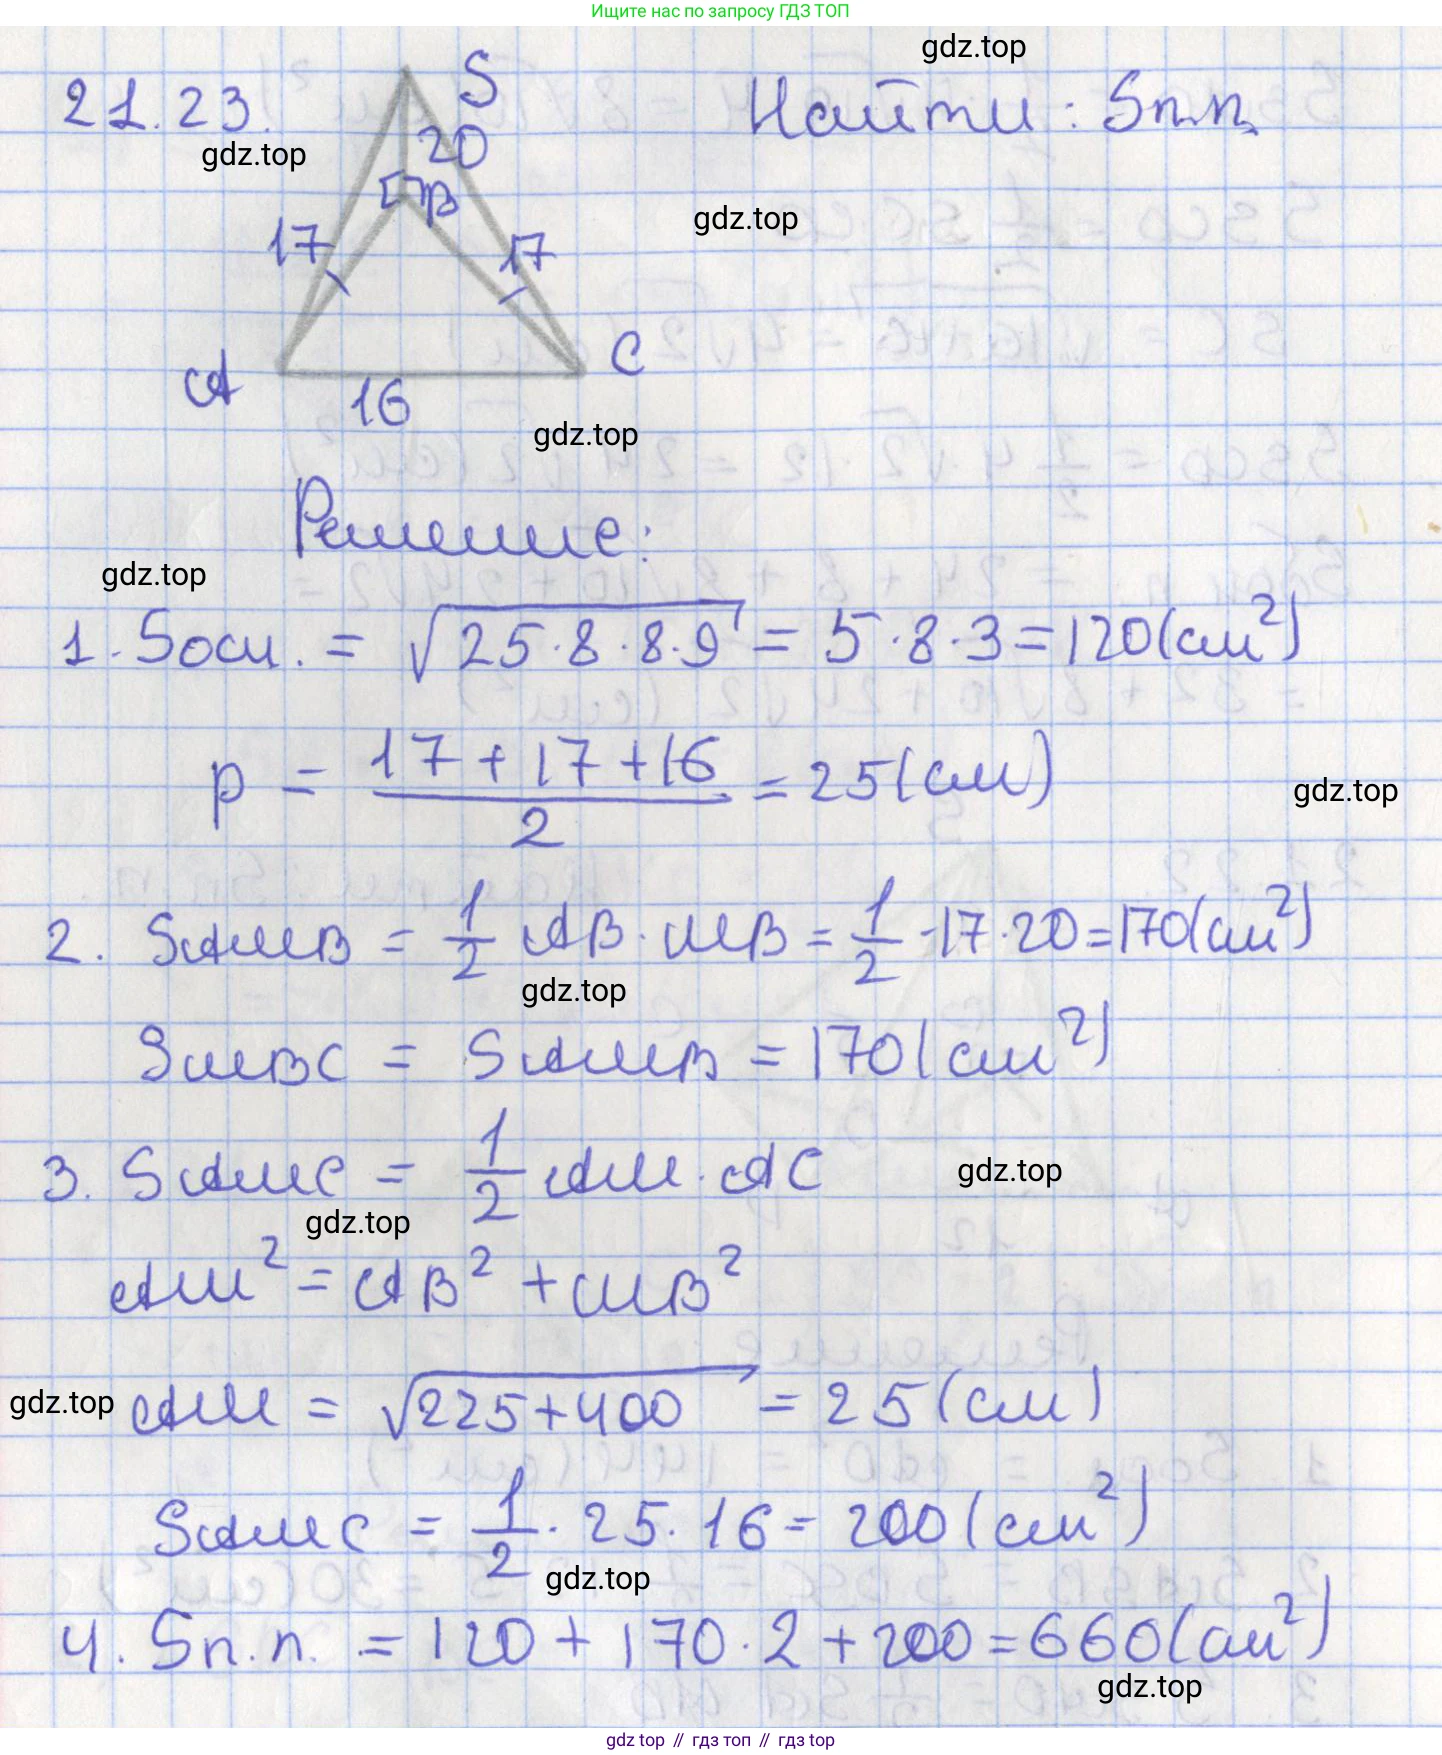 Ищите нас по запросу ГДЗ ТОП
gdz.top
21.23.
S
Найти: Sп.п.
20
gdz.top
B
gdz.top
17
17
A
C
16
gdz.top
Решение:
gdz.top
1. Sосн. = √25·8·8·9 = 5·8·3 = 120(см²)
p = 17 + 17 + 16 / 2 = 25(см)
gdz.top
2. SAMB = 1/2 AB · MB = 1/2 · 17 · 20 = 170(см²)
gdz.top
SMBC = SAMB = 170(см²)
3. SAMC = 1/2 AM · AC
gdz.top
gdz.top
AM² = AB² + MB²
gdz.top
AM = √225+400 = 25(см)
SAMC = 1/2 · 25 · 16 = 200(см²)
gdz.top
4. Sп.п. = 120 + 170 · 2 + 200 = 660(см²)
gdz.top
gdz top // гдз топ // гдз top